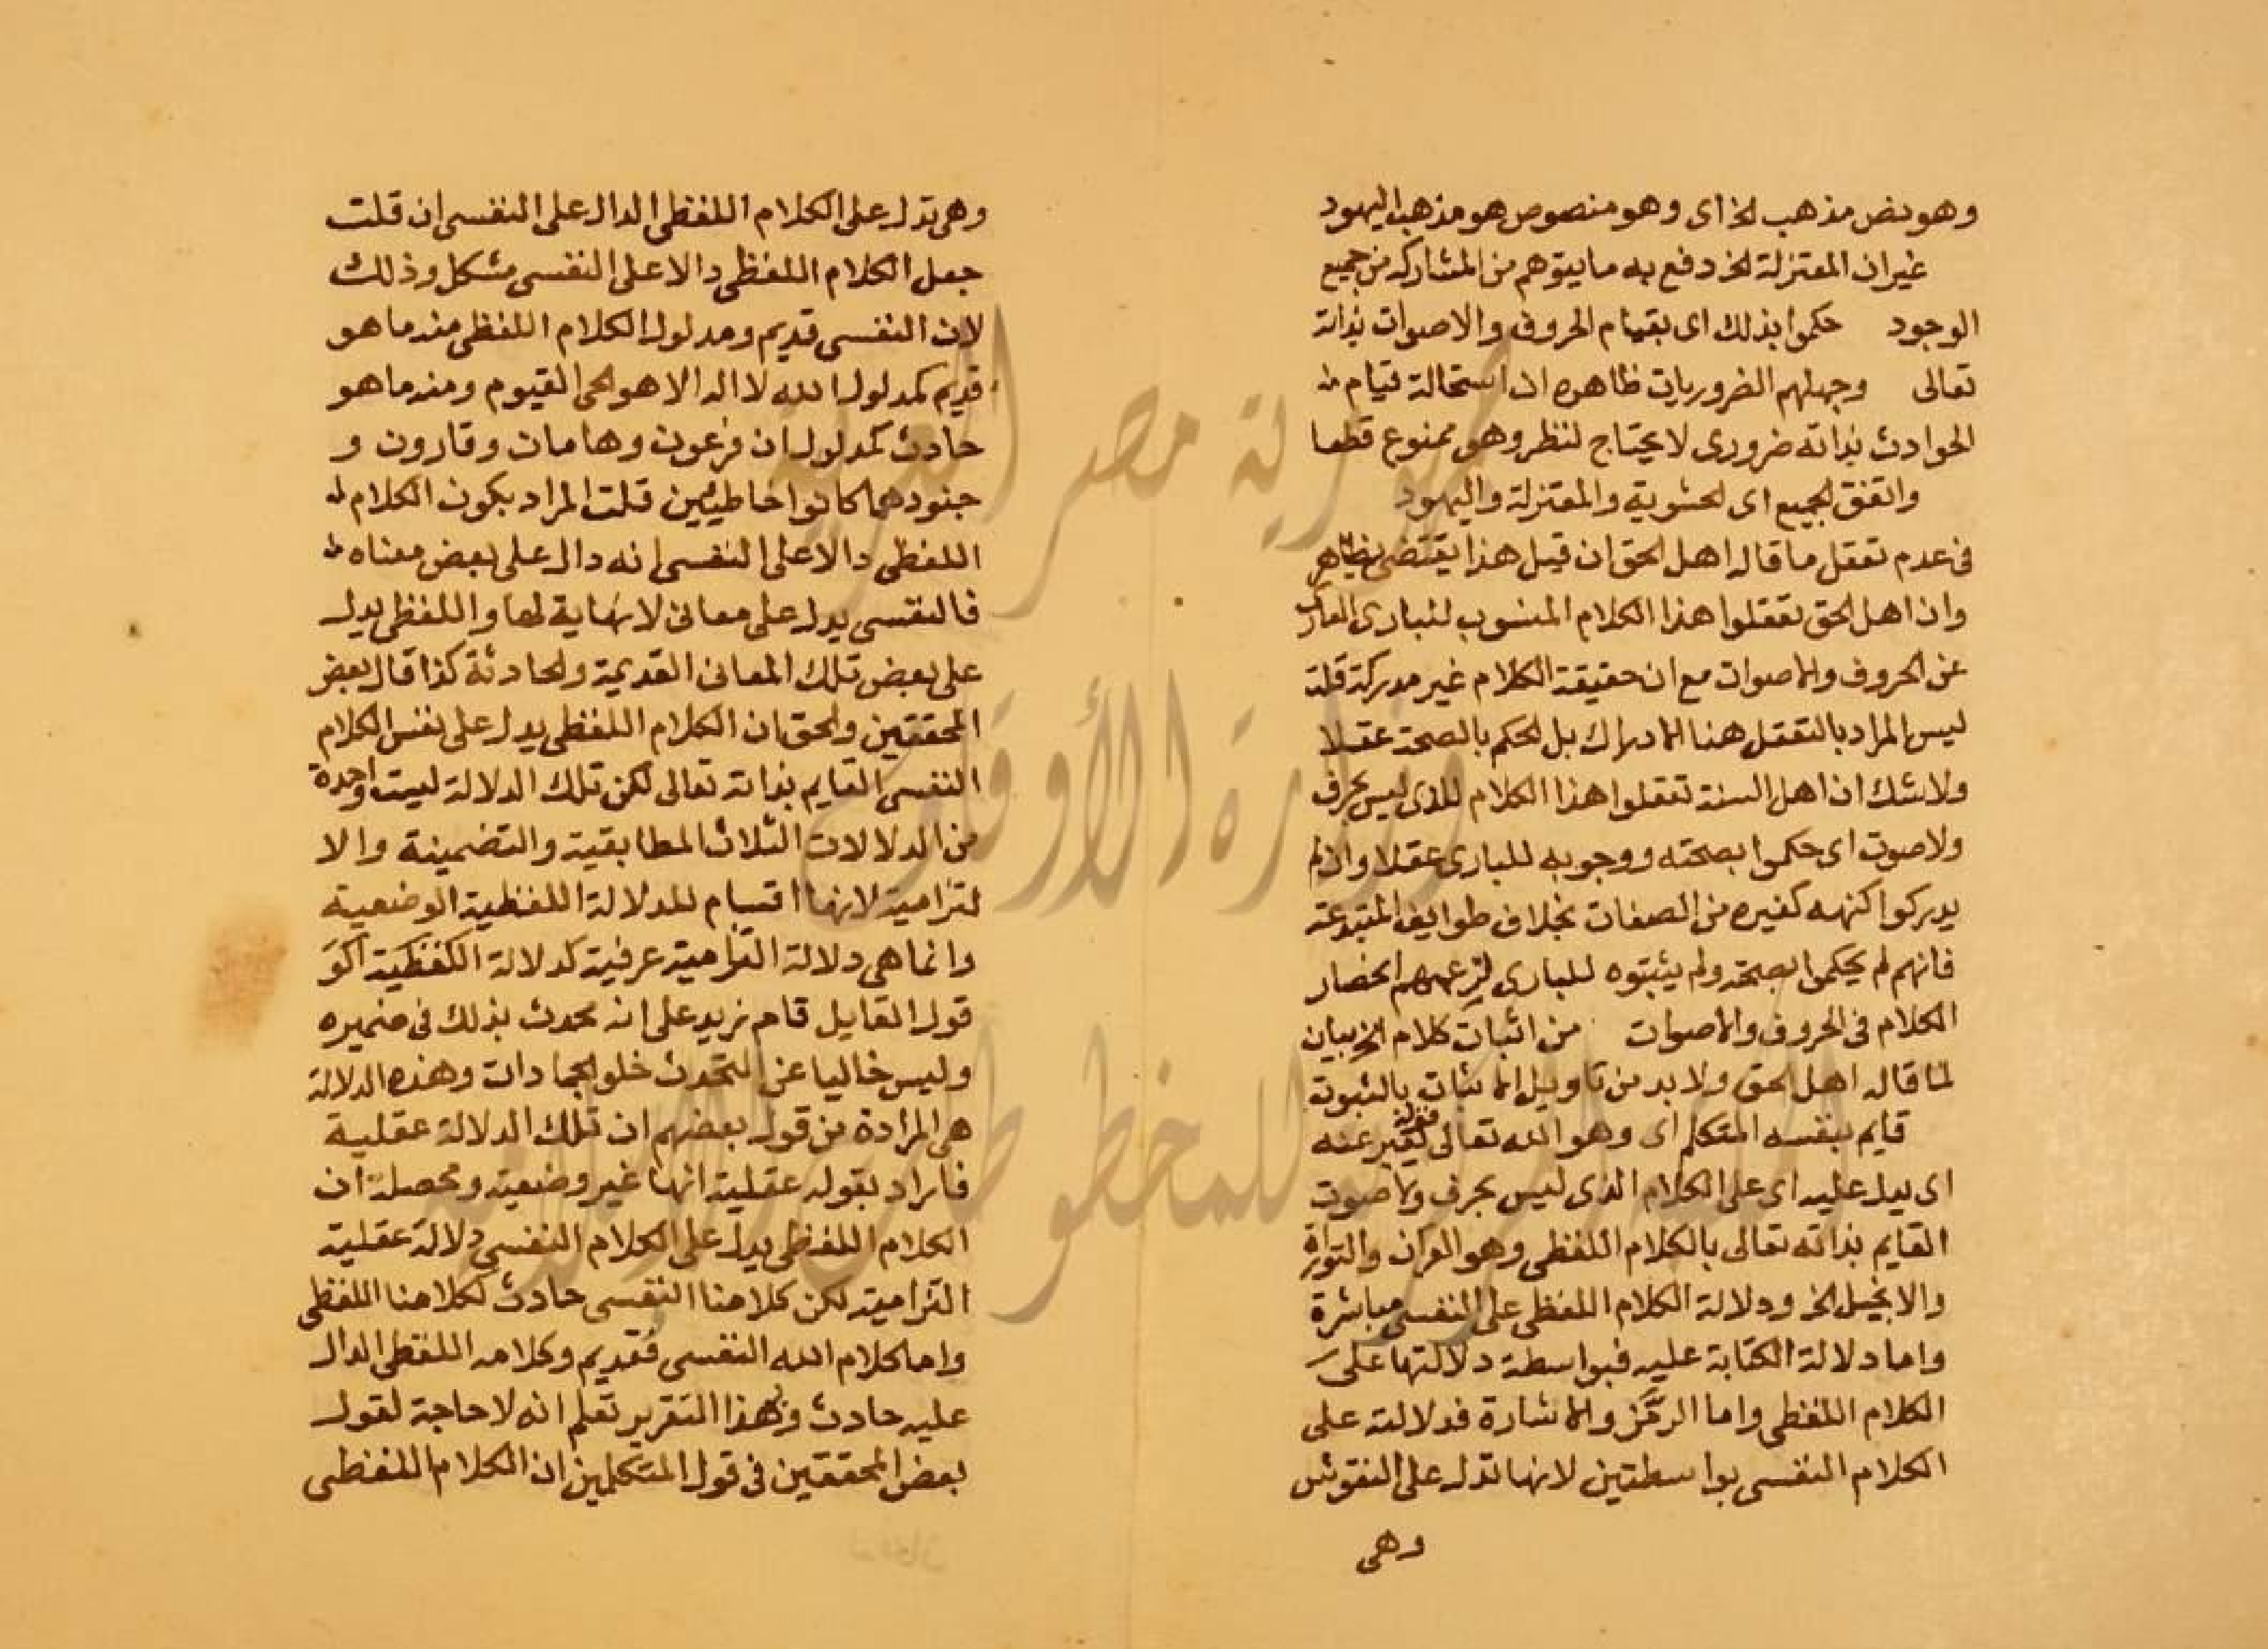 وهو نص مذهب الخ اى وهو منصوص هو مذهب اليهود
غير ان المعتزلة الخ دفع به ما يتوهم من المشاركه من جميع
الوجود حكموا بذلك اى بقيام الحروف والاصوات بذاته
تعالى وجهلهم الضروريات ظاهره ان استحالة قيام
الحوادث بذاته ضرورى لا يحتاج لنظر وهو ممنوع قطعا
واتفق الجميع اى الحشوية والمعتزلة واليهود
فى عدم تعقل ما قاله اهل الحق ان قيل هذا يقتضى بظاهره
وان اهل الحق تعقلوا هذا الكلام المنسوب للبارى العارى
عن الحروف والاصوات مع ان حقيقة الكلام غير مدركة قلت
ليس المراد بالتعقل هنا الادراك بل الحكم بالصحة عقلا
ولا شك ان اهل السنة تعقلوا هذا الكلام الذى ليس بحرف
ولا صوت اى حكموا بصحته ووجوبه للبارى عقلا وان لم
يدركوا كنهه كغيره من الصفات بخلاف طوايف المبتدعة
فانهم لم يحكموا بصحته ولم يثبتوه للبارى لزعمهم انحصار
الكلام فى الحروف والاصوات من اثبات كلام الخ بيان
لما قاله اهل الحق ولا بد من تاويل الاثبات بالثبوت
قايم بنفسه المتكلم اى وهو الله تعالى قوله يعبر عنه
اى يدل عليه اى على الكلام الذى ليس بحرف ولا صوت
القايم بذاته تعالى بالكلام اللفظى وهو القرآن والتوراة
والانجيل الخ ودلالة الكلام اللفظى على النفسى مباشرة
واما دلالة الكتابة عليه فبواسطة دلالتها على
الكلام اللفظى واما الرمز والاشارة فدلالته على
الكلام النفسى بواسطتين لانها تدل على النقوش
وهى
وهى تدل على الكلام اللفظى الدال على النفسى ان قلت
جعل الكلام اللفظى دالا على النفسى مشكل وذلك
لان النفسى قديم ومدلول الكلام اللفظى منه ما هو
قديم كمدلول الله لا اله الا هو الحى القيوم ومنه ما هو
حادث كمدلول ان فرعون وهامان وقارون و
جنودهما كانوا خاطيئين قلت المراد بكون الكلام
اللفظى دالا على النفسى انه دال على بعض معناه
فالنفسى يدل على معانى لا نهاية لها واللفظى يدل
على بعض تلك المعانى القديمة والحادثة كذا قال بعض
المحققين والحق ان الكلام اللفظى يدل على نفس الكلام
النفسى القايم بذاته تعالى لكن تلك الدلالة ليست واحدة
من الدلالات الثلاث المطابقية والتضمينة والا
لتزامية لانها اقسام للدلالة اللفظية الوضعية
وانما هى دلالة التزامية عرفية كدلالة اللفظية
قول القايل قام زيد على انه محدث بذلك فى ضميره
وليس خاليا عن التحدث خلو الجمادات وهذه الدلالة
هى المرادة من قول بعضهم ان تلك الدلالة عقلية
فاراد بقوله عقلية انها غير وضعية ومحصله ان
الكلام اللفظى يدل على الكلام النفسى دلالة عقلية
التزامية لكن كلامنا النفسى حادث لكلامنا اللفظى
واما كلام الله النفسى فقديم وكلامه اللفظى الدال
عليه حادث وبهذا التقرير تعلم انه لا حاجة لقول
بعض المحققين فى قول المتكلمين ان الكلام اللفظى
جمهورية مصر العربية
وزارة الأوقاف
للمخطوطات الإسلامية